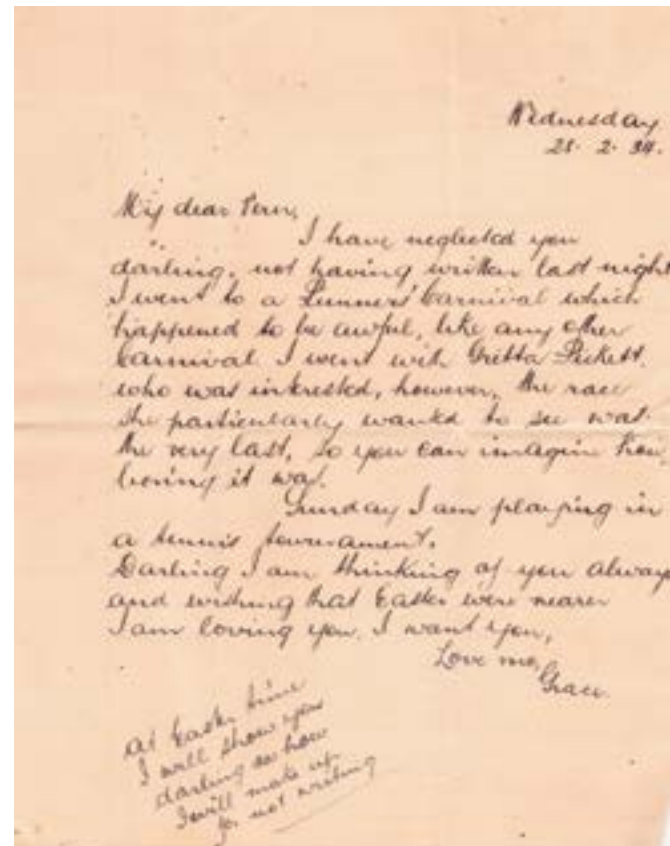 Wednesday
28. 2. 34.
My dear
I have neglected you
darling, not having written last night
I went to a Runners' Carnival which
happened to be awful, like any other
Carnival. I went with Gretta
who was interested, however, the race
she particularly wanted to see was
the very last, so you can imagin how
boring it was.
Sunday I am playing in
a tennis tournament.
Darling I am thinking of you always
and wishing that Easter were nearer
I am loving you. I want you,
Love me,
Grace.
At Easter time
I will show you
darling how
I will make up
for not writing